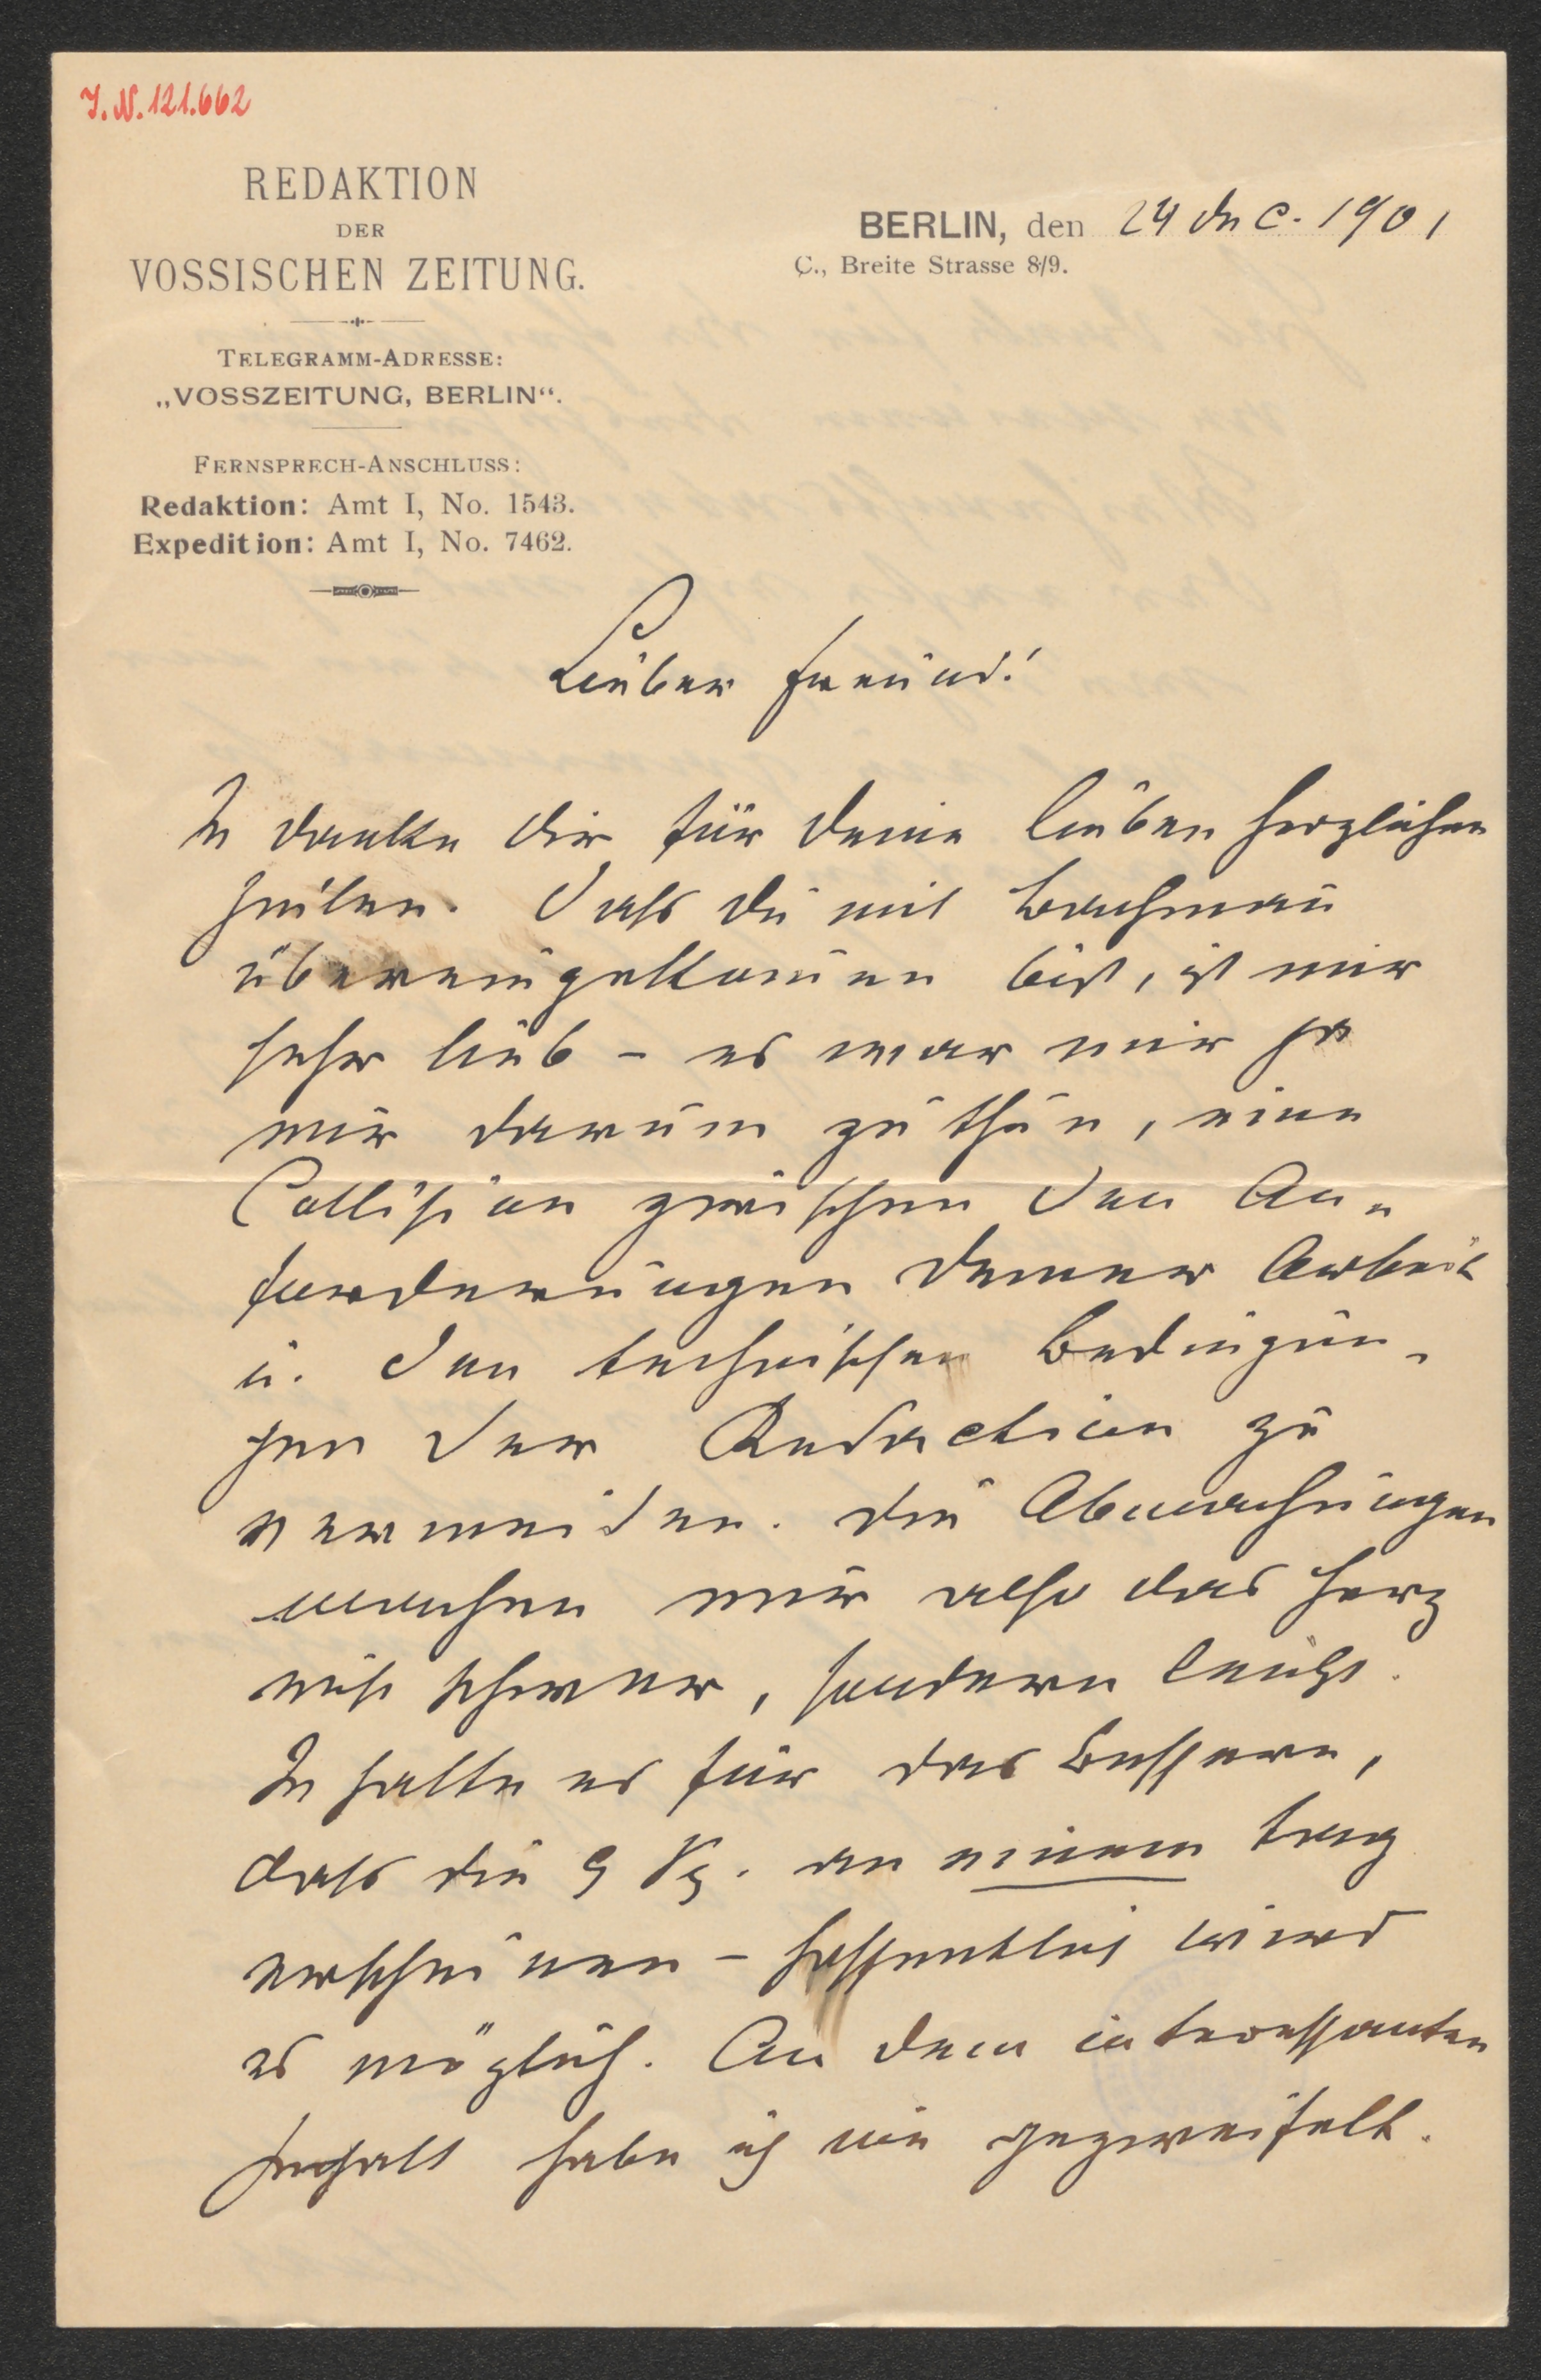 J. N. 121.662
REDAKTION
DER
VOSSISCHEN ZEITUNG.
TELEGRAMM-ADRESSE:
„VOSSZEITUNG, BERLIN“.
FERNSPRECH-ANSCHLUSS:
Redaktion: Amt I, No. 1543.
Expedition: Amt I, No. 7462.
BERLIN, den 24 Dec. 1901
C., Breite Strasse 8/9.
Lieber Freund!
Ich danke Dir für Deine lieben herzlichen
Zeilen. Dass Du mit Bachmann
übereingekommen bist, ist mir
sehr lieb – es war mir ja
nur darum zu thun, eine
Collision zwischen den An-
forderungen Deiner Arbeit
u. den technischen Bedingun-
gen der Redaction zu
vermeiden. Die Abmachungen
machen mir also das Herz
nicht schwer, sondern leicht.
Ich halte es für das Bessere,
dass die 9 Sp. an einem Tag
erscheinen – hoffentlich wird
es möglich. An dem interessanten
Inhalt habe ich nie gezweifelt.